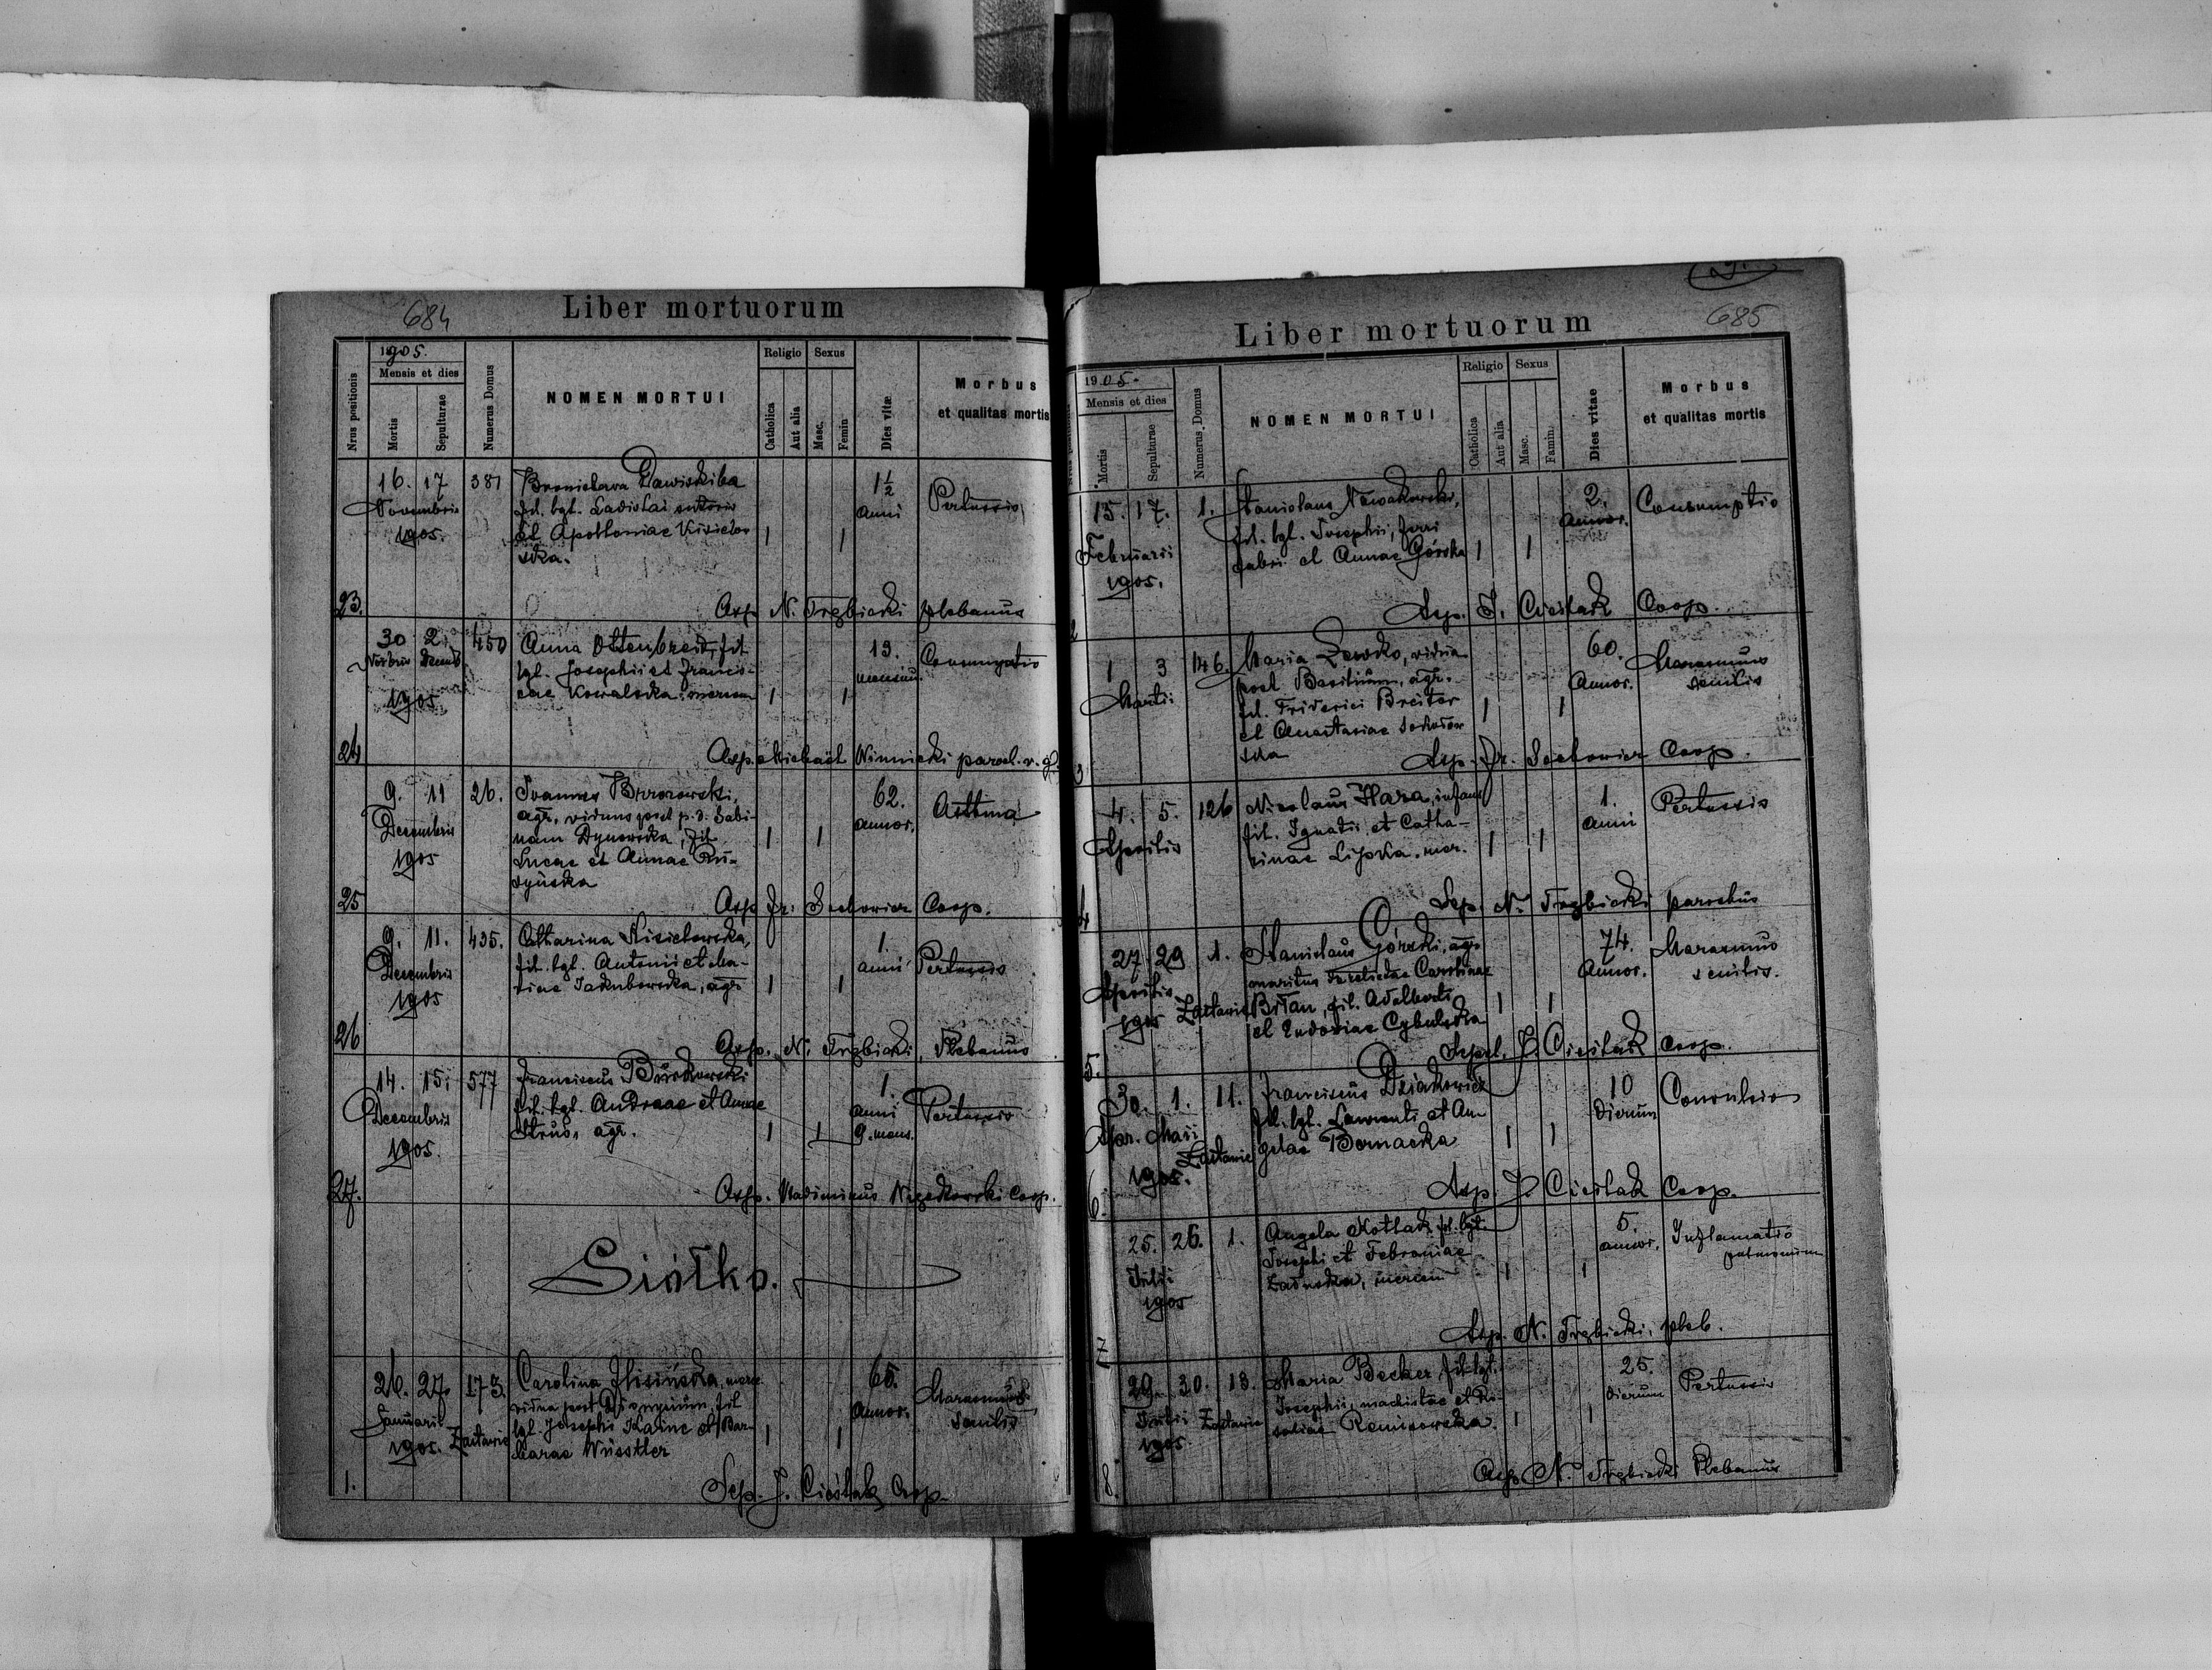 684
Liber mortuorum
Nrus positionis
1905.
Mensis et dies
Mortis
Sepulturae
Numerus Domus
NOMEN MORTUI
Religio
Catholica
Aut alia
Sexus
Masc.
Femin
Dies vitæ
Morbus
et qualitas mortis
23.
16. 17
Novembris
1905.
381
Bronislava
fil. lgt. Ladislai sutoris
et Apolloniae Kisielew
ska.
1 1
1½
anni
Pertussis
Asp. N. Trzbicki plebanus
24
30 2.
Novbris Decemb
1905
450
Anna Ottenbreit, fil.
lgt. Josephi et Francis-
cae Kowalska mercen
1 1
13.
mensiu.
Consumptio
Asp. Michaël Winnicki paroch. r. g.
25
9. 11
Decembris
1905
26.
Ioannes Brzozowski,
agr., viduus post p. d. Sabi-
nam Dynowska, fil.
Lucae et Annae Ru-
dyńska
1 1
62.
annor.
Asthma
Asp. Fr. Sochowicz Coop.
26
9. 11.
Decembris
1905
435.
Catharina Kisielewska,
fil. lgt. Antonii et Ma-
riae Jakubowska, agr.
1 1
1.
anni
Pertussis
Asp. N. Trzbicki, Plebanus
27.
14. 15.
Decembris
1905.
577
Franciscus Burkowski
fil. lgt. Andreae et Annae
Strus, agr.
1 1
1.
anni
9. mens.
Pertussis
Asp. Vladimirus Coop.
Siółko.
1.
26. 27.
Januarii
1905. Zastawie
173.
Carolina
vidua post Dionysium, fil
lgt. Josephi Kaine et Bar-
barae Wüsstler
1 1
65.
Annor.
Marasmus
senilis
Sep. J. Cieślak Coop.
685
Liber mortuorum
1905.
Mensis et dies
Mortis
Sepulturae
Numerus Domus
NOMEN MORTUI
Religio
Catholica
Aut alia
Sexus
Masc.
Famin.
Dies vitae
Morbus
et qualitas mortis
2
15. 17.
Februarii
1905.
1.
Stanislaus Nowakowski,
fil. lgt. Josephi, ferri
fabri et Annae Górska
1 1
2.
annor.
Consumptio
Asp. J. Cieślak Coop.
3
1 3
Martii
146.
Maria Lewko, vidua
post Basilium, agr.
fil. Friderici Breiter
et Anastasiae
ska
1 1
60.
Annor.
Marasmus
senilis
Asp. Fr. Sochowicz Coop.
4
4. 5.
Aprilis
126
Nicolaus Hara, infans
fil. Ignatii et Catha-
rinae Lipska. mer.
1 1
1.
anni
Pertussis
Sep. N. Trzbicki parochus
5.
27 29
Aprilis
1905 Zastawie
1.
Stanislaus Górski, agr.
maritus relictae Carolinae
Britan, fil. Adalberti
et Eudoxiae Cybulska
1 1
74.
Annor.
Marasmus
senilis.
Sepel. J. Cieślak Coop.
6.
30. 1.
Apr. Maii
1905. Zastawie
11.
Franciscus Dziakowicz
fil. lgt. Laurentii et An
gelae Bernacka
1 1
10
dierum
Convulsio
Asp. J. Cieślak Coop.
7
25. 26.
Julii
1905
1.
Angela Kotlak fil. lgt.
Josephi et Febroniae
Zadurska, mercen
1 1
5.
annor.
Inflamatio
pulmonum
Asp. N. Trzbicki, pleb.
8.
29. 30.
Julii
1905 Zastawie
13.
Maria Becker fil. lgt.
Josephi, machistae et Ro-
saliae Remisowska
1 1
25.
dierum
Pertussis
Asp. N. Trzbicki Plebanus